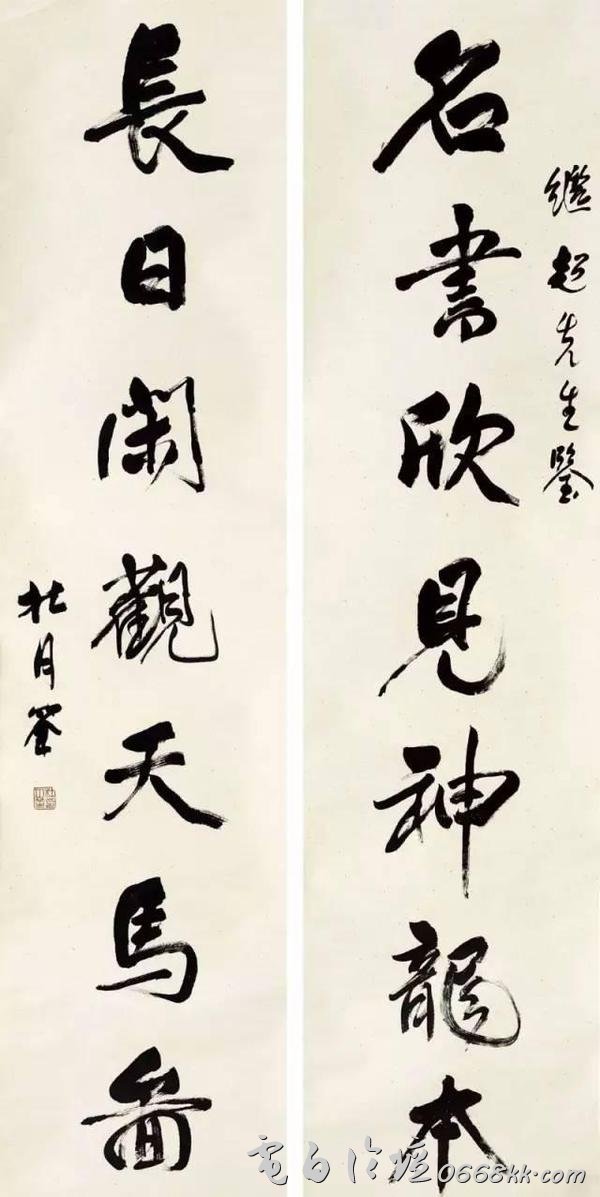 繼超先生鑒
名書欣見神龍本
長日閑觀天馬啚
杜月笙
電白論壇0668kk.com